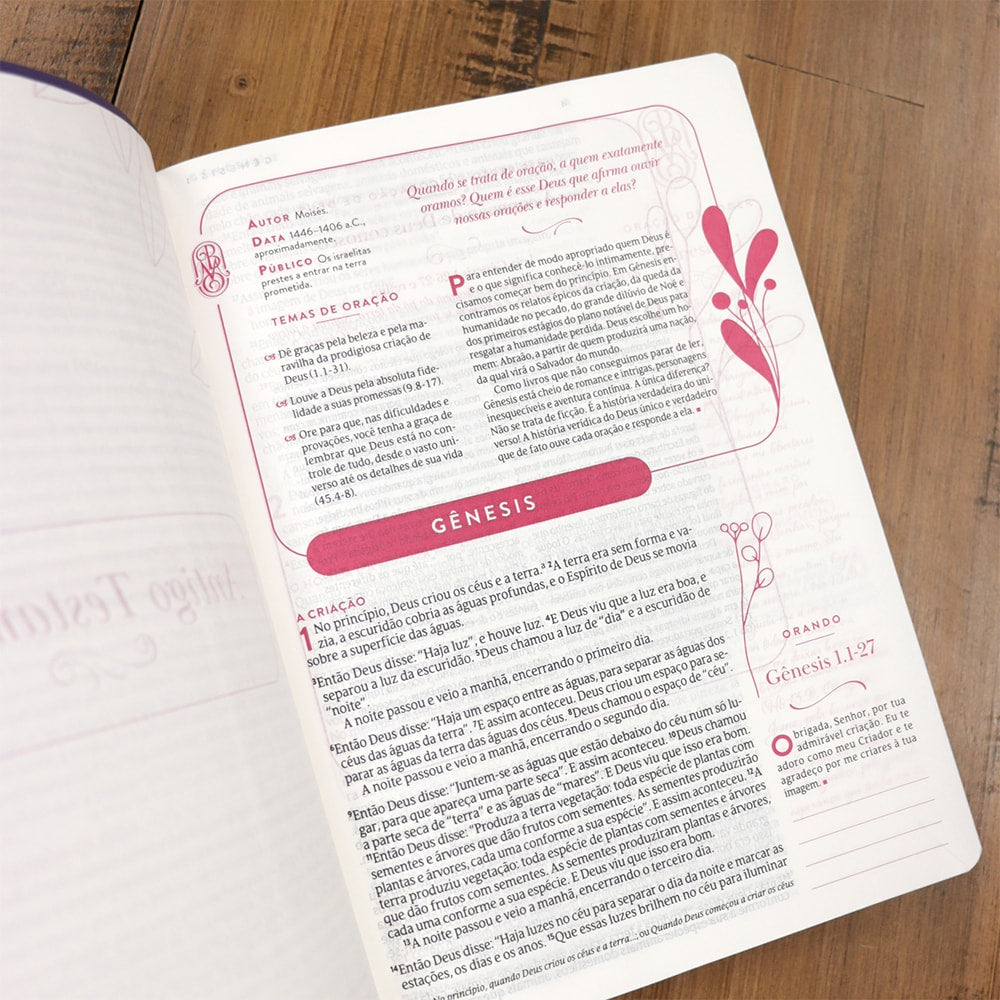 AUTOR Moisés.
DATA 1446-1406 a.C.,
aproximadamente.
PÚBLICO Os israelitas
prestes a entrar na terra
prometida.
TEMAS DE ORAÇÃO
Dê graças pela beleza e pela ma-
ravilha da prodigiosa criação de
Deus (1.1-31).
Louve a Deus pela absoluta fide-
lidade a suas promessas (9.8-17).
Ore para que, nas dificuldades e
provações, você tenha a graça de
lembrar que Deus está no con-
trole de tudo, desde o vasto uni-
verso até os detalhes de sua vida
(45.4-8).
Quando se trata de oração, a quem exatamente
oramos? Quem é esse Deus que afirma ouvir
nossas orações e responder a elas?
Para entender de modo apropriado quem Deus é
e o que significa conhecê-lo intimamente, pre-
cisamos começar bem do princípio. Em Gênesis en-
contramos os relatos épicos da criação, da queda da
humanidade no pecado, do grande dilúvio de Noé e
dos primeiros estágios do plano notável de Deus para
resgatar a humanidade perdida. Deus escolhe um ho-
mem: Abraão, a partir de quem produzirá uma nação,
da qual virá o Salvador do mundo.
Como livros que não conseguimos parar de ler,
Gênesis está cheio de romance e intrigas, personagens
inesquecíveis e aventura contínua. A única diferença?
Não se trata de ficção. É a história verdadeira do uni-
verso! A história verídica do Deus único e verdadeiro
que de fato ouve cada oração e responde a ela.
GÊNESIS
A CRIAÇÃO
1 No princípio, Deus criou os céus e a terra.ª ²A terra era sem forma e va-
zia, a escuridão cobria as águas profundas, e o Espírito de Deus se movia
sobre a superfície das águas.
³Então Deus disse: “Haja luz”, e houve luz. ⁴E Deus viu que a luz era boa, e
separou a luz da escuridão. ⁵Deus chamou a luz de “dia” e a escuridão de
“noite”.
A noite passou e veio a manhã, encerrando o primeiro dia.
⁶Então Deus disse: “Haja um espaço entre as águas, para separar as águas dos
céus das águas da terra”. ⁷E assim aconteceu. Deus criou um espaço para se-
parar as águas da terra das águas dos céus. ⁸Deus chamou o espaço de “céu”.
A noite passou e veio a manhã, encerrando o segundo dia.
⁹Então Deus disse: “Juntem-se as águas que estão debaixo do céu num só lu-
gar, para que apareça uma parte seca”. E assim aconteceu. ¹⁰Deus chamou
a parte seca de “terra” e as águas de “mares”. E Deus viu que isso era bom.
¹¹Então Deus disse: “Produza a terra vegetação: toda espécie de plantas com
sementes e árvores que dão frutos com sementes. As sementes produzirão
plantas e árvores, cada uma conforme a sua espécie”. E assim aconteceu. ¹²A
terra produziu vegetação: toda espécie de plantas com sementes e árvores
que dão frutos com sementes. As sementes produziram plantas e árvores,
cada uma conforme a sua espécie. E Deus viu que isso era bom.
¹³A noite passou e veio a manhã, encerrando o terceiro dia.
¹⁴Então Deus disse: “Haja luzes no céu para separar o dia da noite e marcar as
estações, os dias e os anos. ¹⁵Que essas luzes brilhem no céu para iluminar
No princípio, quando Deus criou os céus e a terra...; ou Quando Deus começou a criar os céus
ORANDO
Gênesis 1.1-27
Obrigada, Senhor, por tua
admirável criação. Eu te
adoro como meu Criador e te
agradeço por me criares à tua
imagem.